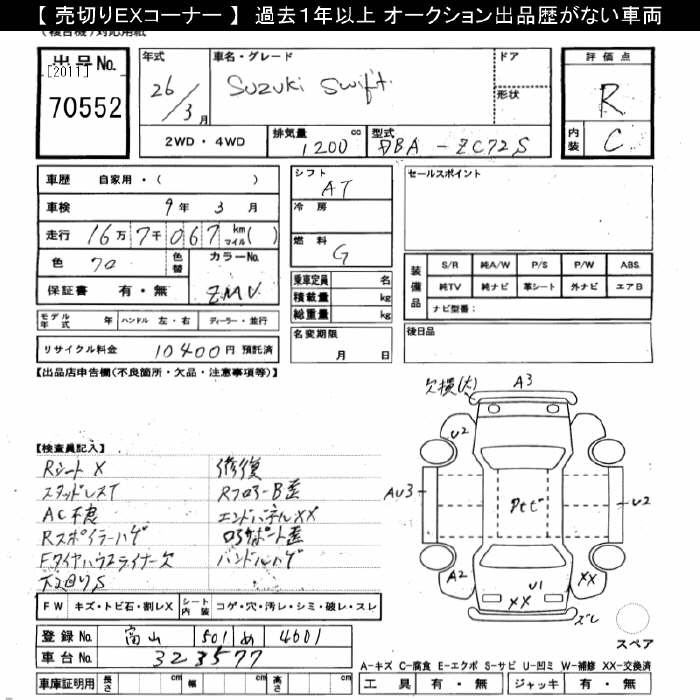 【 売切りEXコーナー 】 過去1年以上 オークション出品歴がない車両
出品No.
[2011]
70552
年式
26/3月
車名・グレード
Suzuki Swift
ドア
形状
2WD・4WD
排気量 1200 cc
型式 DBA-ZC72S
評価点
R
内装 C
車歴 自家用・( )
車検 9年 3月
走行 16万7千067 km マイル( )
色 70 色替
カラーNo. ZMV
保証書 有・無
モデル年式 年 ハンドル 左・右 ディーラー・並行
リサイクル料金 10400円 預託済
シフト AT
冷房
燃料 G
乗車定員 名
積載量 kg
総重量 kg
名変期限
月 日
セールスポイント
装備品
S/R 純A/W P/S P/W ABS
純TV 純ナビ 革シート 外ナビ エアB
ナビ型番:
後日品
【出品店申告欄(不良箇所・欠品・注意事項等)】
【検査員記入】
Rシート X
スタッドレスT
AC不良
Rスポイラーハゲ
Fタイヤハウスライナー欠
下廻りS
修復
RフロアーB歪
エンドパネルXX
ロアサポート歪
ハンドルハゲ
欠損(大) A3
U2
AU3
PtビU2
A2
U1
XX
XX
ズレ
スペア
FW キズ・トビ石・割レX シート内装 コゲ・穴・汚レ・シミ・破レ・スレ
登録No. 富山 501 め 4601
車台No. 323577
車庫証明用 長さ cm 幅 cm 高さ cm
A-キズ C-腐食 E-エクボ S-サビ U-凹ミ W-補修 XX-交換済
工具 有・無 ジャッキ 有・無